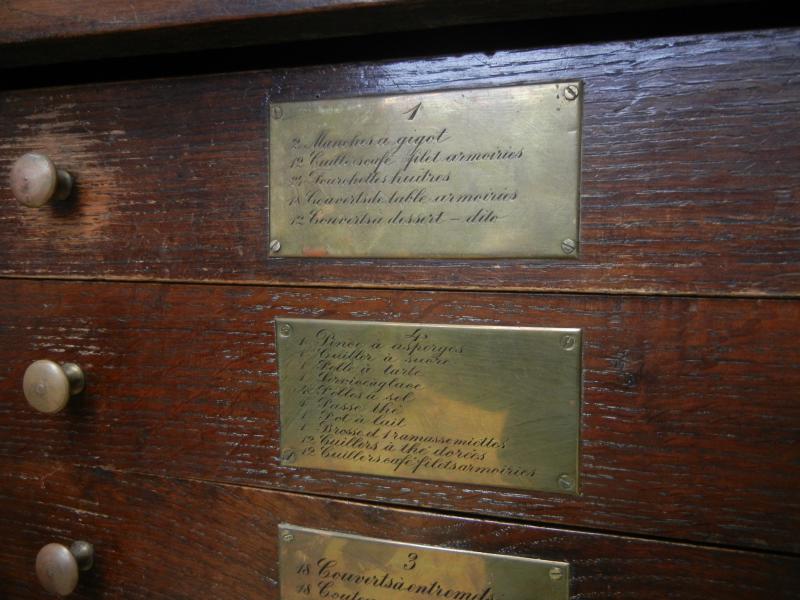 1
2 Manches à gigot
12 Cuill. café filet armoiries
24 Fourchettes huitres
18 Couverts de table armoiries
12 Couverts à dessert – dito
4
1 Pince à asperges
1 Cuiller à sucre
1 Pelle à tarte
1 Service à glace
Pelles à sel
1 Passe thé
1 Pot à lait
1 Brosse et 1 ramassemiettes
12 Cuillers à thé dorées
12 Cuillers café filets armoiries
3
18 Couverts à entremets
18